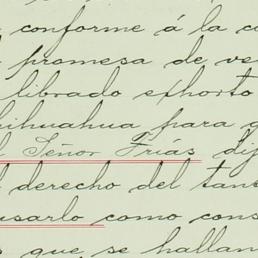 conforme á la c
promesa de ve
librado exhorto
hihuahua para q
l Señor Frías dij
l derecho del tan
usarlo como cons
que se hallan